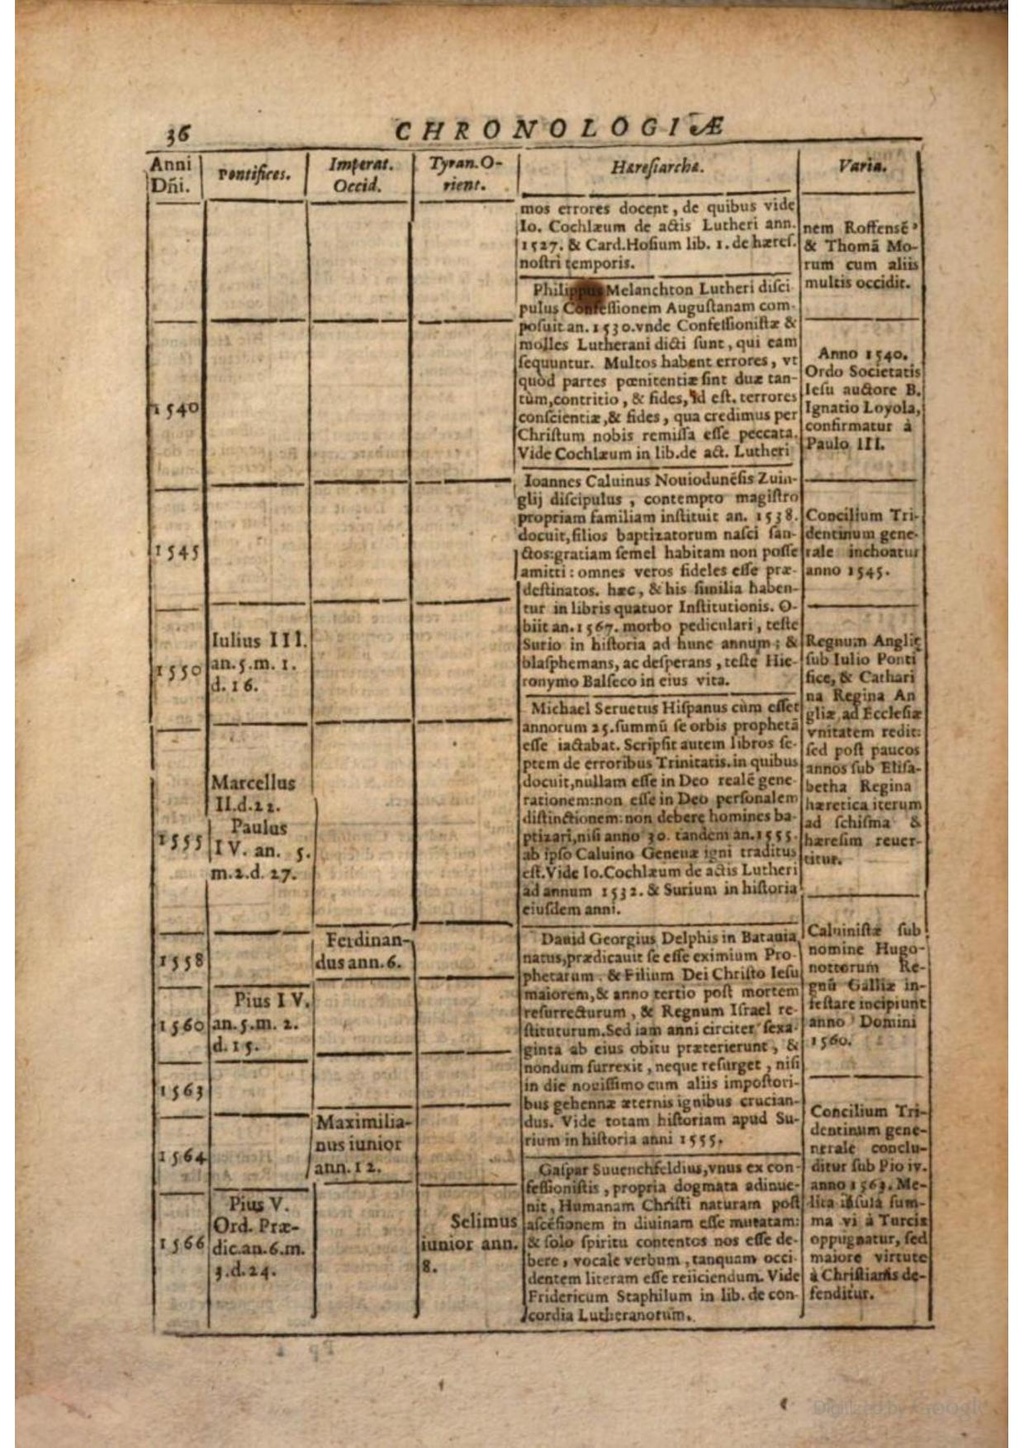 36 CHRONOLOGIÆ
Anni
Dñi.
Pontifices.
Imperat.
Occid.
Tyran. O-
rient.
Hæresiarchæ.
Varia.
mos errores docent, de quibus vide
Io. Cochlæum de actis Lutheri ann.
1527. & Card. Hosium lib. 1. de hæres.
nostri temporis.
Philippus Melanchton Lutheri disci
pulus Confessionem Augustanam com-
posuit an. 1530. vnde Confessionistæ &
molles Lutherani dicti sunt, qui eam
sequuntur. Multos habent errores, vt
quòd partes pœnitentiæ sint duæ tan-
tùm, contritio, & fides, id est, terrores
conscientiæ, & fides, qua credimus per
Christum nobis remissa esse peccata.
Vide Cochlæum in lib. de act. Lutheri
Ioannes Caluinus Nouiodunēsis Zuin-
glij discipulus, contempto magistro
propriam familiam instituit an. 1538.
docuit, filios baptizatorum nasci san-
ctos: gratiam semel habitam non posse
amitti: omnes veros fideles esse præ-
destinatos. hæc, & his similia haben-
tur in libris quatuor Institutionis. O-
biit an. 1567. morbo pediculari, teste
Surio in historia ad hunc annum; &
blasphemans, ac desperans, teste Hie-
ronymo Balseco in eius vita.
Michael Seruetus Hispanus cùm esset
annorum 25. summū se orbis prophetā
esse iactabat. Scripsit autem libros se-
ptem de erroribus Trinitatis. in quibus
docuit, nullam esse in Deo realē gene-
rationem: non esse in Deo personalem
distinctionem: non debere homines ba-
ptizari, nisi anno 30. tandem an. 1555.
ab ipso Caluino Geneuæ igni traditus
est. Vide Io. Cochlæum de actis Lutheri
ad annum 1532. & Surium in historia
eiusdem anni.
Dauid Georgius Delphis in Batauia
natus, prædicauit se esse eximium Pro-
phetarum, & Filium Dei Christo Iesu
maiorem, & anno tertio post mortem
resurrecturum, & Regnum Israel re-
stituturum. Sed iam anni circiter sexa-
ginta ab eius obitu præterierunt, &
nondum surrexit, neque resurget, nisi
in die nouissimo cum aliis impostori-
bus gehennæ æternis ignibus crucian-
dus. Vide totam historiam apud Su-
rium in historia anni 1555.
Gaspar Suuenchfeldius, vnus ex con-
fessionistis, propria dogmata adinue-
nit, Humanam Christi naturam post
ascēsionem in diuinam esse mutatam:
& solo spiritu contentos nos esse de-
bere, vocale verbum, tanquam occi-
dentem literam esse reiiciendum. Vide
Fridericum Staphilum in lib. de con-
cordia Lutheranorum.
nem Roffensē,
& Thomā Mo-
rum cum aliis
multis occidit.
1540
Anno 1540.
Ordo Societatis
Iesu auctore B.
Ignatio Loyola,
confirmatur à
Paulo III.
1545
Concilium Tri-
dentinum gene-
rale inchoatur
anno 1545.
1550
Iulius III.
an. 5. m. 1.
d. 16.
Regnum Anglię
sub Iulio Ponti
fice, & Cathari
na Regina An
gliæ, ad Ecclesiæ
vnitatem redit:
sed post paucos
annos sub Elisa-
betha Regina
hæretica iterum
ad schisma &
hæresim reuer-
titur.
1555
Marcellus
II. d. 22.
Paulus
IV. an. 5.
m. 2. d. 27.
1558
Ferdinan-
dus ann. 6.
Caluinistæ sub
nomine Hugo-
nottorum Re-
gnū Galliæ in-
festare incipiunt
anno Domini
1560.
1560
Pius IV.
an. 5. m. 2.
d. 15.
1563
1564
Maximilia-
nus iunior
ann. 12.
Concilium Tri-
dentinum gene-
nerale conclu-
ditur sub Pio iv.
anno 1563. Me-
lita insula sum-
ma vi à Turcis
oppugnatur, sed
maiore virtute
à Christianis de-
fenditur.
1566
Pius V.
Ord. Præ-
dic. an. 6. m.
3. d. 24.
Selimus
iunior ann.
8.
Digitized by Google